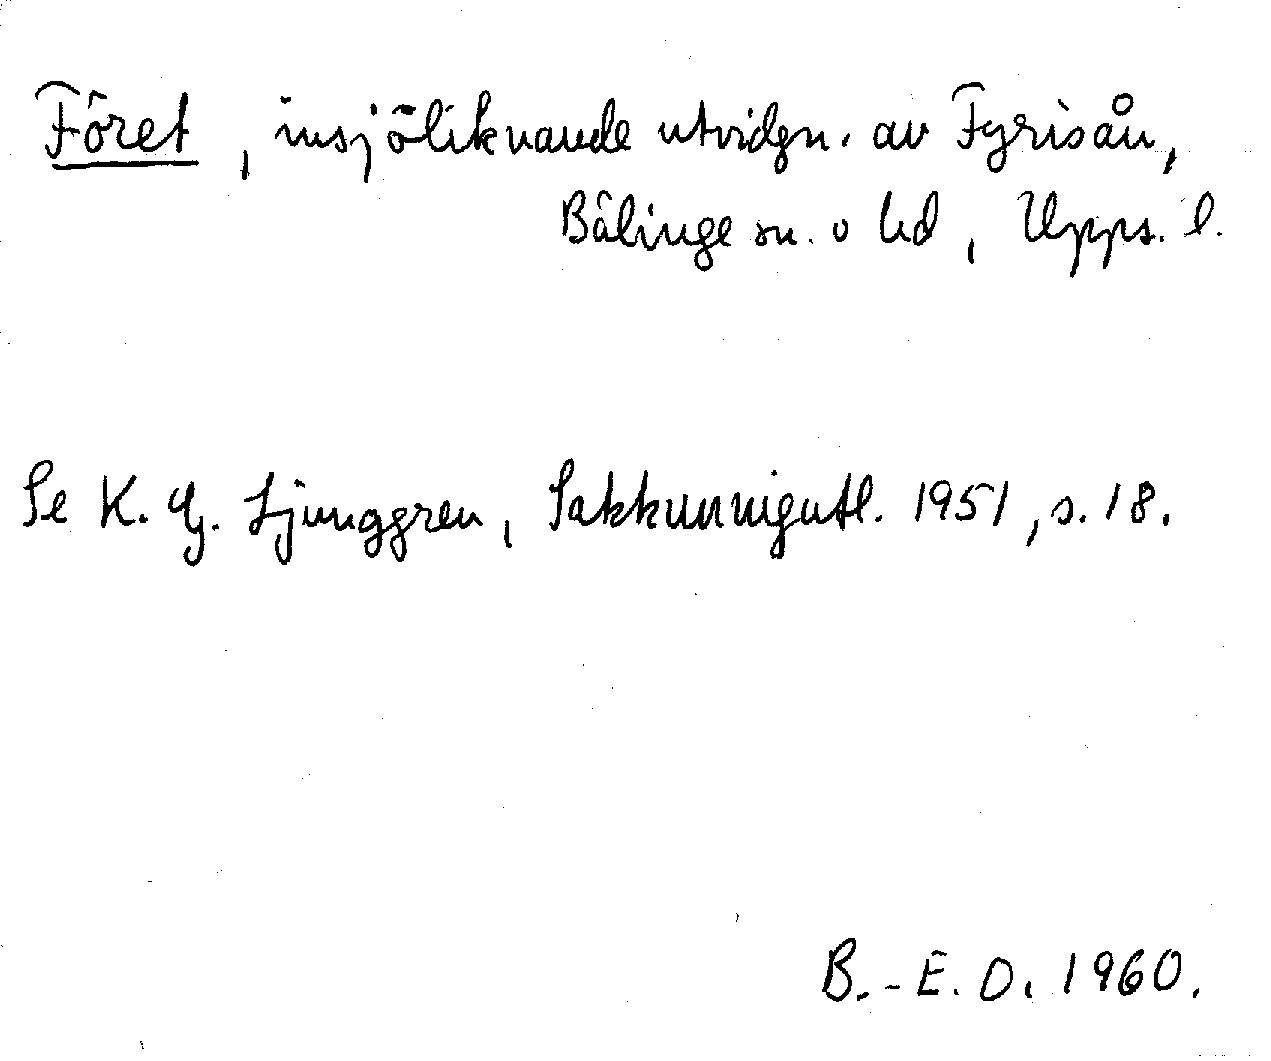 Föret, insjöliknande utvidgn. av Fyrisån,
Bälinge sn. o hd, Upps. l.
Se K. G. Ljunggren, Sakkunnigutl. 1951, s. 18.
B.-E. O. 1960.